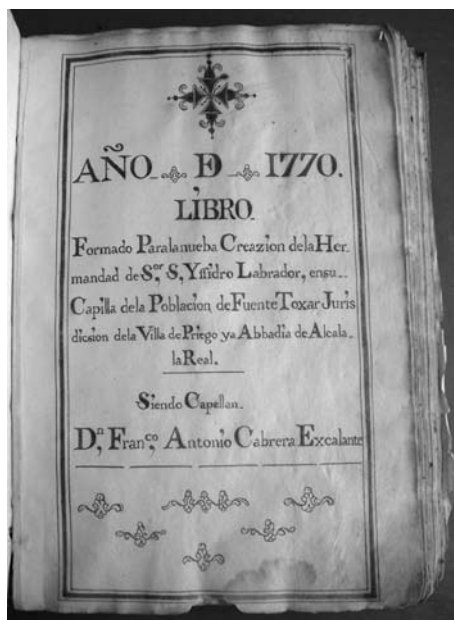 AÑO D 1770.
LIBRO.
Formado Paralanueba Creazion delaHer
mandad de S.or S, Yssidro Labrador, ensu
Capilla dela Poblacion, deFuenteToxar Juris
dicsion dela Villa dePriego yaAbbadia deAlcala.
laReal.
Siendo Capellan.
D.n Fran.co Antonio Cabrera Excalante